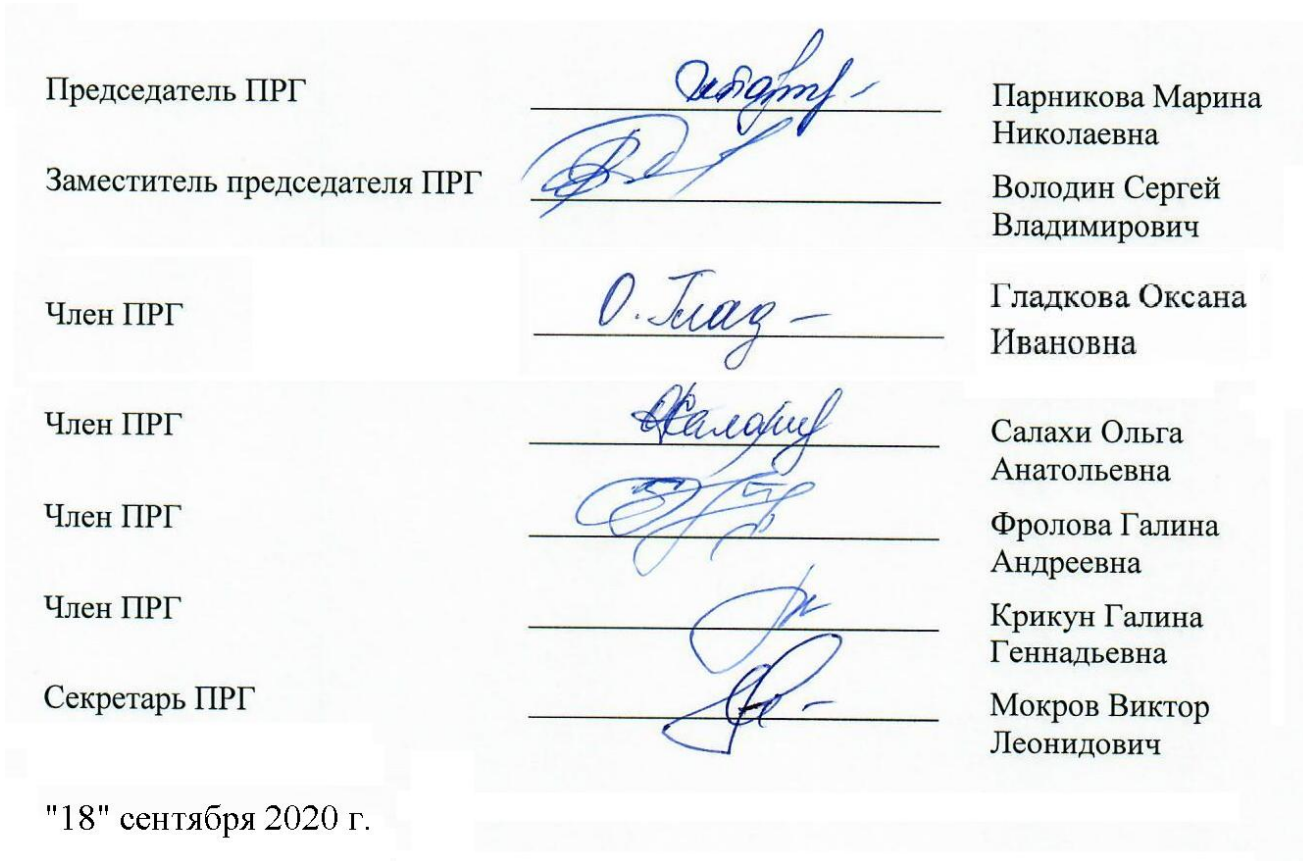 Председатель ПРГ
Парникова Марина
Николаевна
Заместитель председателя ПРГ
Володин Сергей
Владимирович
Член ПРГ
О. Глад
Гладкова Оксана
Ивановна
Член ПРГ
Салахи Ольга
Анатольевна
Член ПРГ
Фролова Галина
Андреевна
Член ПРГ
Крикун Галина
Геннадьевна
Секретарь ПРГ
Мокров Виктор
Леонидович
"18" сентября 2020 г.